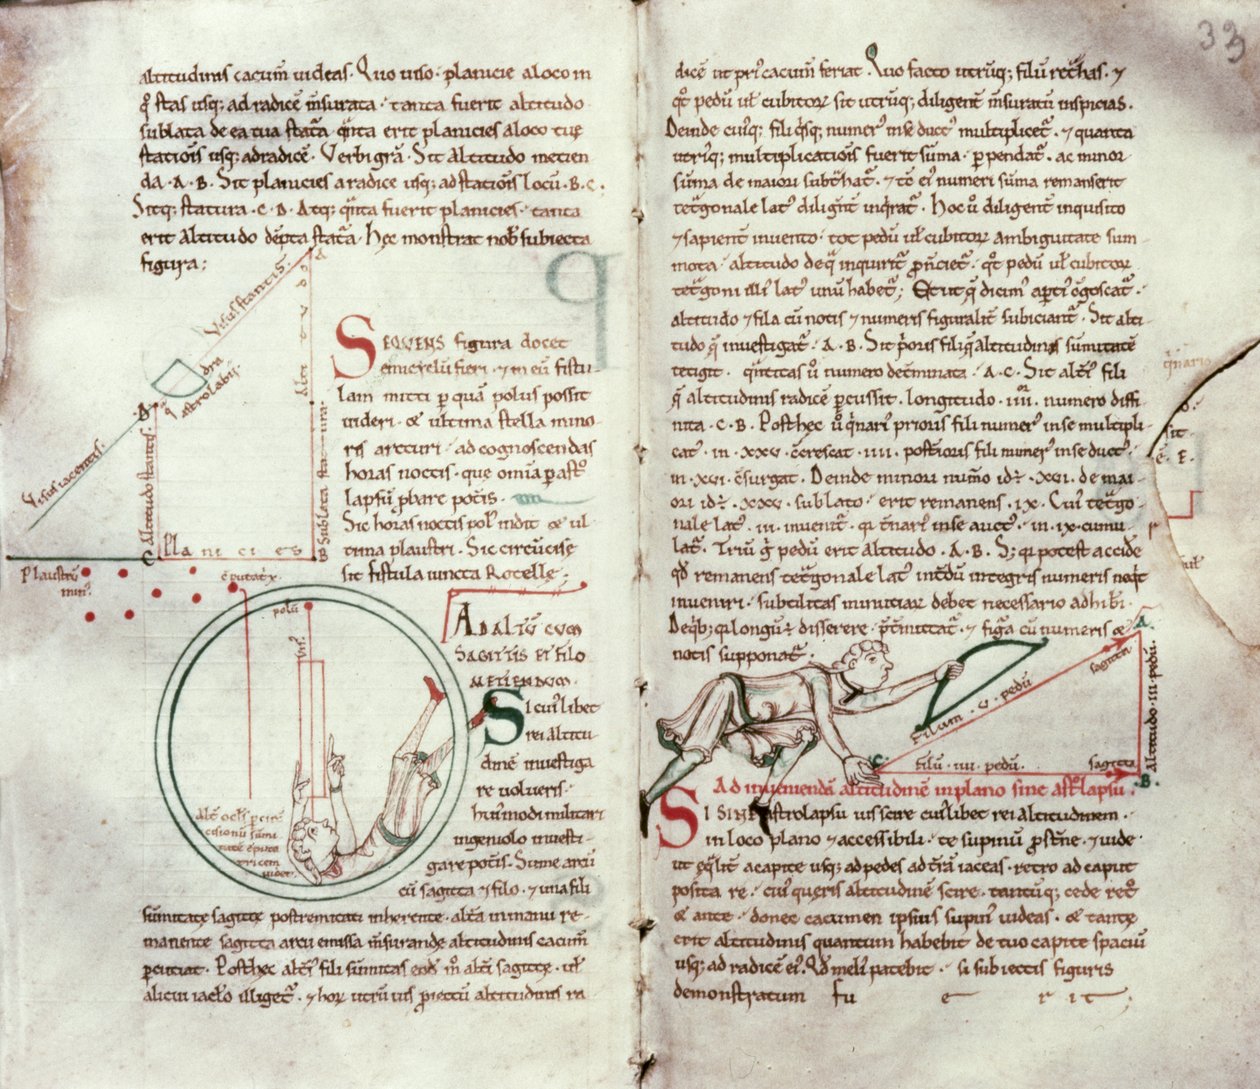 altitudinis cacum̄ uideas. Quo uiso planicie a loco in
q̊ stas usq; ad radicē m̄surata tanta fuerit altitudo
sublata de ea tua stat̄a q̄nta erit planicies a loco tuę
statiōis usq; ad radicē. Verbi grā. Sit altitudo metien
da .A.B. Sit planicies a radice usq; ad statiōis locū .B.C.
Sitq; statura .C.D. Atq; q̄nta fuerit planicies tanta
erit altitudo dēpta stat̄a. Hęc monstrat nob̄ subiecta
figura;
Visus stantis.
A
Alti
dra
astrolabii.
D
Visus iacentis.
Altitudo stantis.
Sublata statura.
C
Planicies
B
SEQUENS figura docet
semicyclū fieri & in eū fistu
lam mitti per quā polus possit
uideri & ultima stella mino
ris arcturi ad cognoscendas
horas noctis que omīa p ast̊
lapsū pbare potīs.
Sic horas noctis pol' indit & ul
tima plaustri. Sic circūcise
sit fistula iuncta Rotellę;
Plaustrū
min'.
cōputat'x.
polū
ADALITŪ CUM
SAGITTIS ET FILO
METIENDUM.
Si cui'libet
rei altitu
dinē inuestiga
re uolueris
hui'modi militari
ingenio inuesti
gare potīs. Sume arcū
cū sagitta & filo & una fili
sūmitatę sagittę postremitati inherente alt̄a in manu re
manente sagitta arcu emissa m̄surandę altitudinis cacum̄
pcutiat. Posthęc alt̄i' fili sūmitas eod̄ m̊ alt̄i sagittę ul'
alicui iaclo illiget'. & hor utrū uis piectū altitudinis ra
33
dicē ut pri' cacum̄ feriat. Quo facto utrūq; filū ret̄has. &
q̊t pedū ul' cubitor sit utrūq; diligent̄ m̄suratū inspicias.
Deinde cui'q; fili q̊sq; numer' in se duct' multiplicet'. & quanta
utri'q; multiplicatiōis fuerit sūma ppendat'. ac minor
sūma de maiori subt̄hat'. & t̄c ei' numeri sūma remanserit
tet̄gonale lat' diligēt̄ inq̄rat'. Hoc u̇ diligent̄ inquisito
& sapient̄ inuento tot pedū ul' cubitor ambiguitate sum
mota altitudo de q̄ inquirit' p̄nciet'. q̊t pedū ul' cubitor
tet̄goni illi' lat' unū habet'; Et ut q̊ dicim' apti' cōgoscat'.
altitudo & fila cū notis & numeris figuralit̄ subiciant'. Sit alti
tudo q̄ inuestigat'. A.B. Sit p̄oris fili q̊ altitudinis sūmitatē
tetigit quātitas u̇ numero det̄minata. A.C. Sit alt̄i' fili
q̊ altitudinis radicē pcussit. longitudo .IIII. numero diffi
nita .C.B. Posthęc u̇ q̄nari' prioris fili numer' in se multipli
cat' in .XXV. c̄crescat. IIII. post̄ioris fili numer' in se duct'
in .XVI. c̄surgat. Deinde minori num̄o id ÷ .XVI. de mai
ori id ÷ .XXV. sublato erit remanens .IX. Cui' tet̄go
nale lat' .III. inuenit' q̄ t̄nari' in se auct' in .IX. cumu
lat'. Triū g̊ pedū erit altitudo .A.B. S; q̄ potest accide
q̊d remanens tet̄gonale lat' int̄dū integris numeris neq̄t
inueniri subtilitas minuciar debet necessario adhib̄i.
De q̄b; q̄ longū ÷ disserere p̄t̄mittat' & fig̊a cū numeris &
notis supponat'.
A.
sagitta
Filum .V. pedū
Altitudo .III. pedū.
C
filū .IIII. pedū.
sagitta
.B.
Ad inueniendā altitudinē in plano sine ast̊lapsu.
SI SINE astrolapsu uis scire cui'libet rei altitudinem
in loco plano & accessibili te supinū p̊st̄ne & uide
ut eq̄lit̄ a capite usq; ad pedes ad t̄rā iaceas retro ad caput
posita re cui' queris altitudinē scire tantūq; cede ret̊
& ante donec cacumen ipsius supin' uideas & tantę
erit altitudinis quantum habebit de tuo capite spaciū
usq; ad radicē ei'. Q̊d meli' patebit si subiectis figuris
demonstratum fu e r i t;